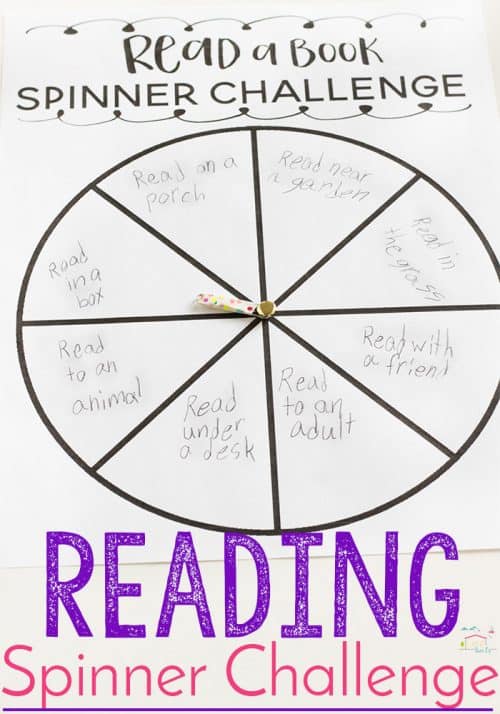 Read a Book
SPINNER CHALLENGE
Read on a
porch
Read near
a garden
Read in
the grass
Read with
a friend
Read
to an
adult
Read
under
a desk
Read
to an
animal
Read
in a
box
READING
Spinner Challenge